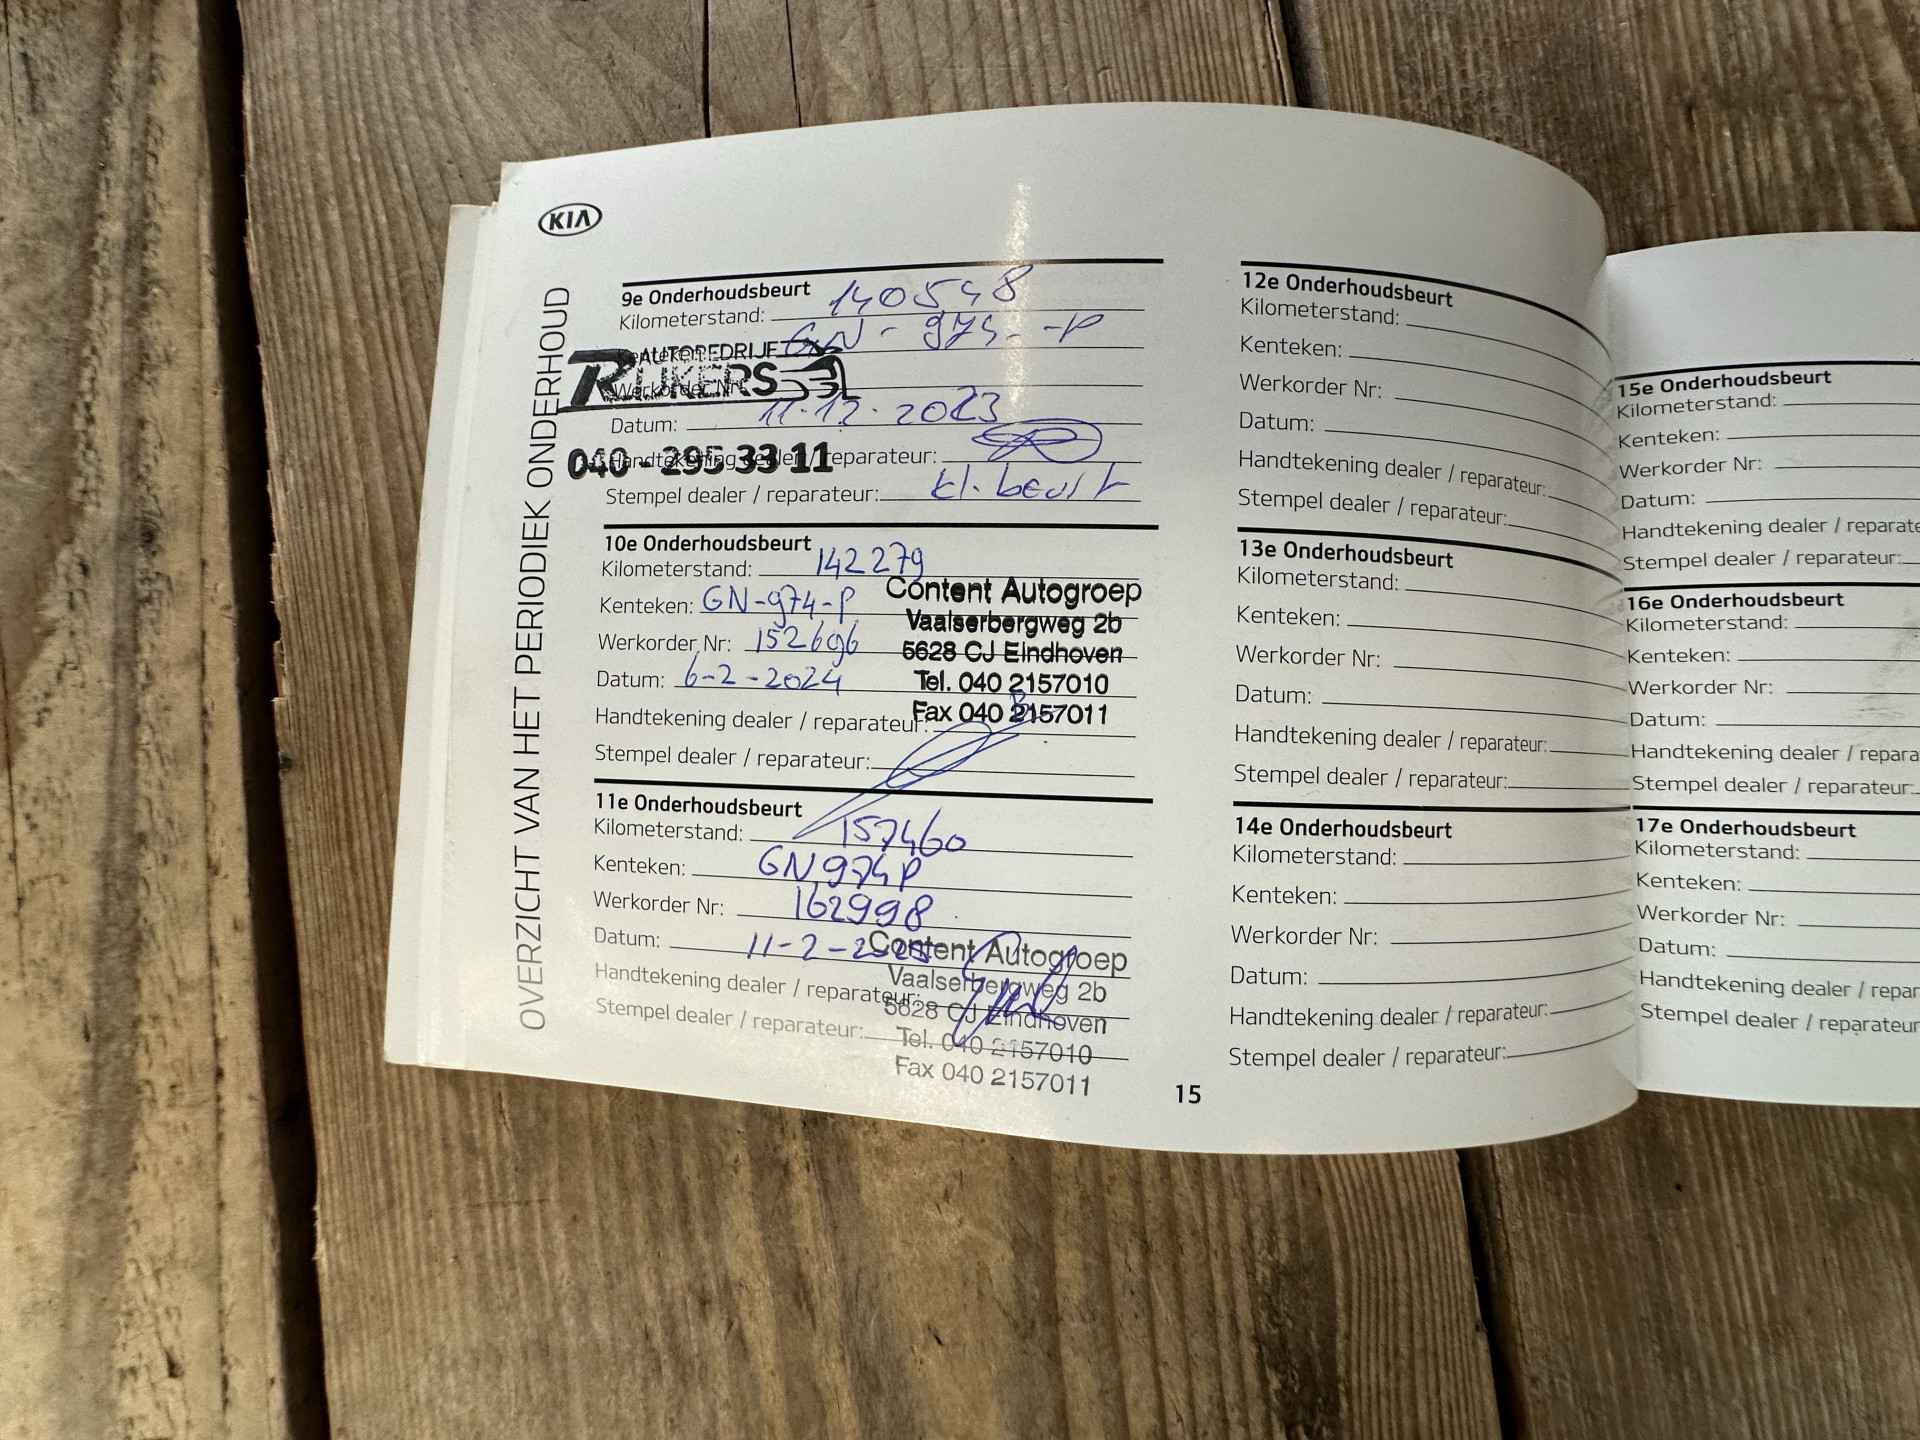 KIA
OVERZICHT VAN HET PERIODIEK ONDERHOUD
9e Onderhoudsbeurt
Kilometerstand: 140548
Kenteken: GN-974-P
AUTOBEDRIJF
RIJKERS
Werkorder Nr:
Datum: 11-12-2023
040 - 295 33 11
Handtekening dealer / reparateur:
Stempel dealer / reparateur: kl. beurt
10e Onderhoudsbeurt
Kilometerstand: 142279
Kenteken: GN-974-P
Werkorder Nr: 152696
Datum: 6-2-2024
Handtekening dealer / reparateur:
Stempel dealer / reparateur:
Content Autogroep
Vaalserbergweg 2b
5628 CJ Eindhoven
Tel. 040 2157010
Fax 040 2157011
11e Onderhoudsbeurt
Kilometerstand: 157460
Kenteken: GN974P
Werkorder Nr: 162998
Datum: 11-2-2025
Handtekening dealer / reparateur:
Stempel dealer / reparateur:
Content Autogroep
Vaalserbergweg 2b
5628 CJ Eindhoven
Tel. 040 2157010
Fax 040 2157011
12e Onderhoudsbeurt
Kilometerstand:
Kenteken:
Werkorder Nr:
Datum:
Handtekening dealer / reparateur:
Stempel dealer / reparateur:
13e Onderhoudsbeurt
Kilometerstand:
Kenteken:
Werkorder Nr:
Datum:
Handtekening dealer / reparateur:
Stempel dealer / reparateur:
14e Onderhoudsbeurt
Kilometerstand:
Kenteken:
Werkorder Nr:
Datum:
Handtekening dealer / reparateur:
Stempel dealer / reparateur:
15
15e Onderhoudsbeurt
Kilometerstand:
Kenteken:
Werkorder Nr:
Datum:
Handtekening dealer / reparate
Stempel dealer / reparateur:
16e Onderhoudsbeurt
Kilometerstand:
Kenteken:
Werkorder Nr:
Datum:
Handtekening dealer / repara
Stempel dealer / reparateur:
17e Onderhoudsbeurt
Kilometerstand:
Kenteken:
Werkorder Nr:
Datum:
Handtekening dealer / repar
Stempel dealer / reparateur